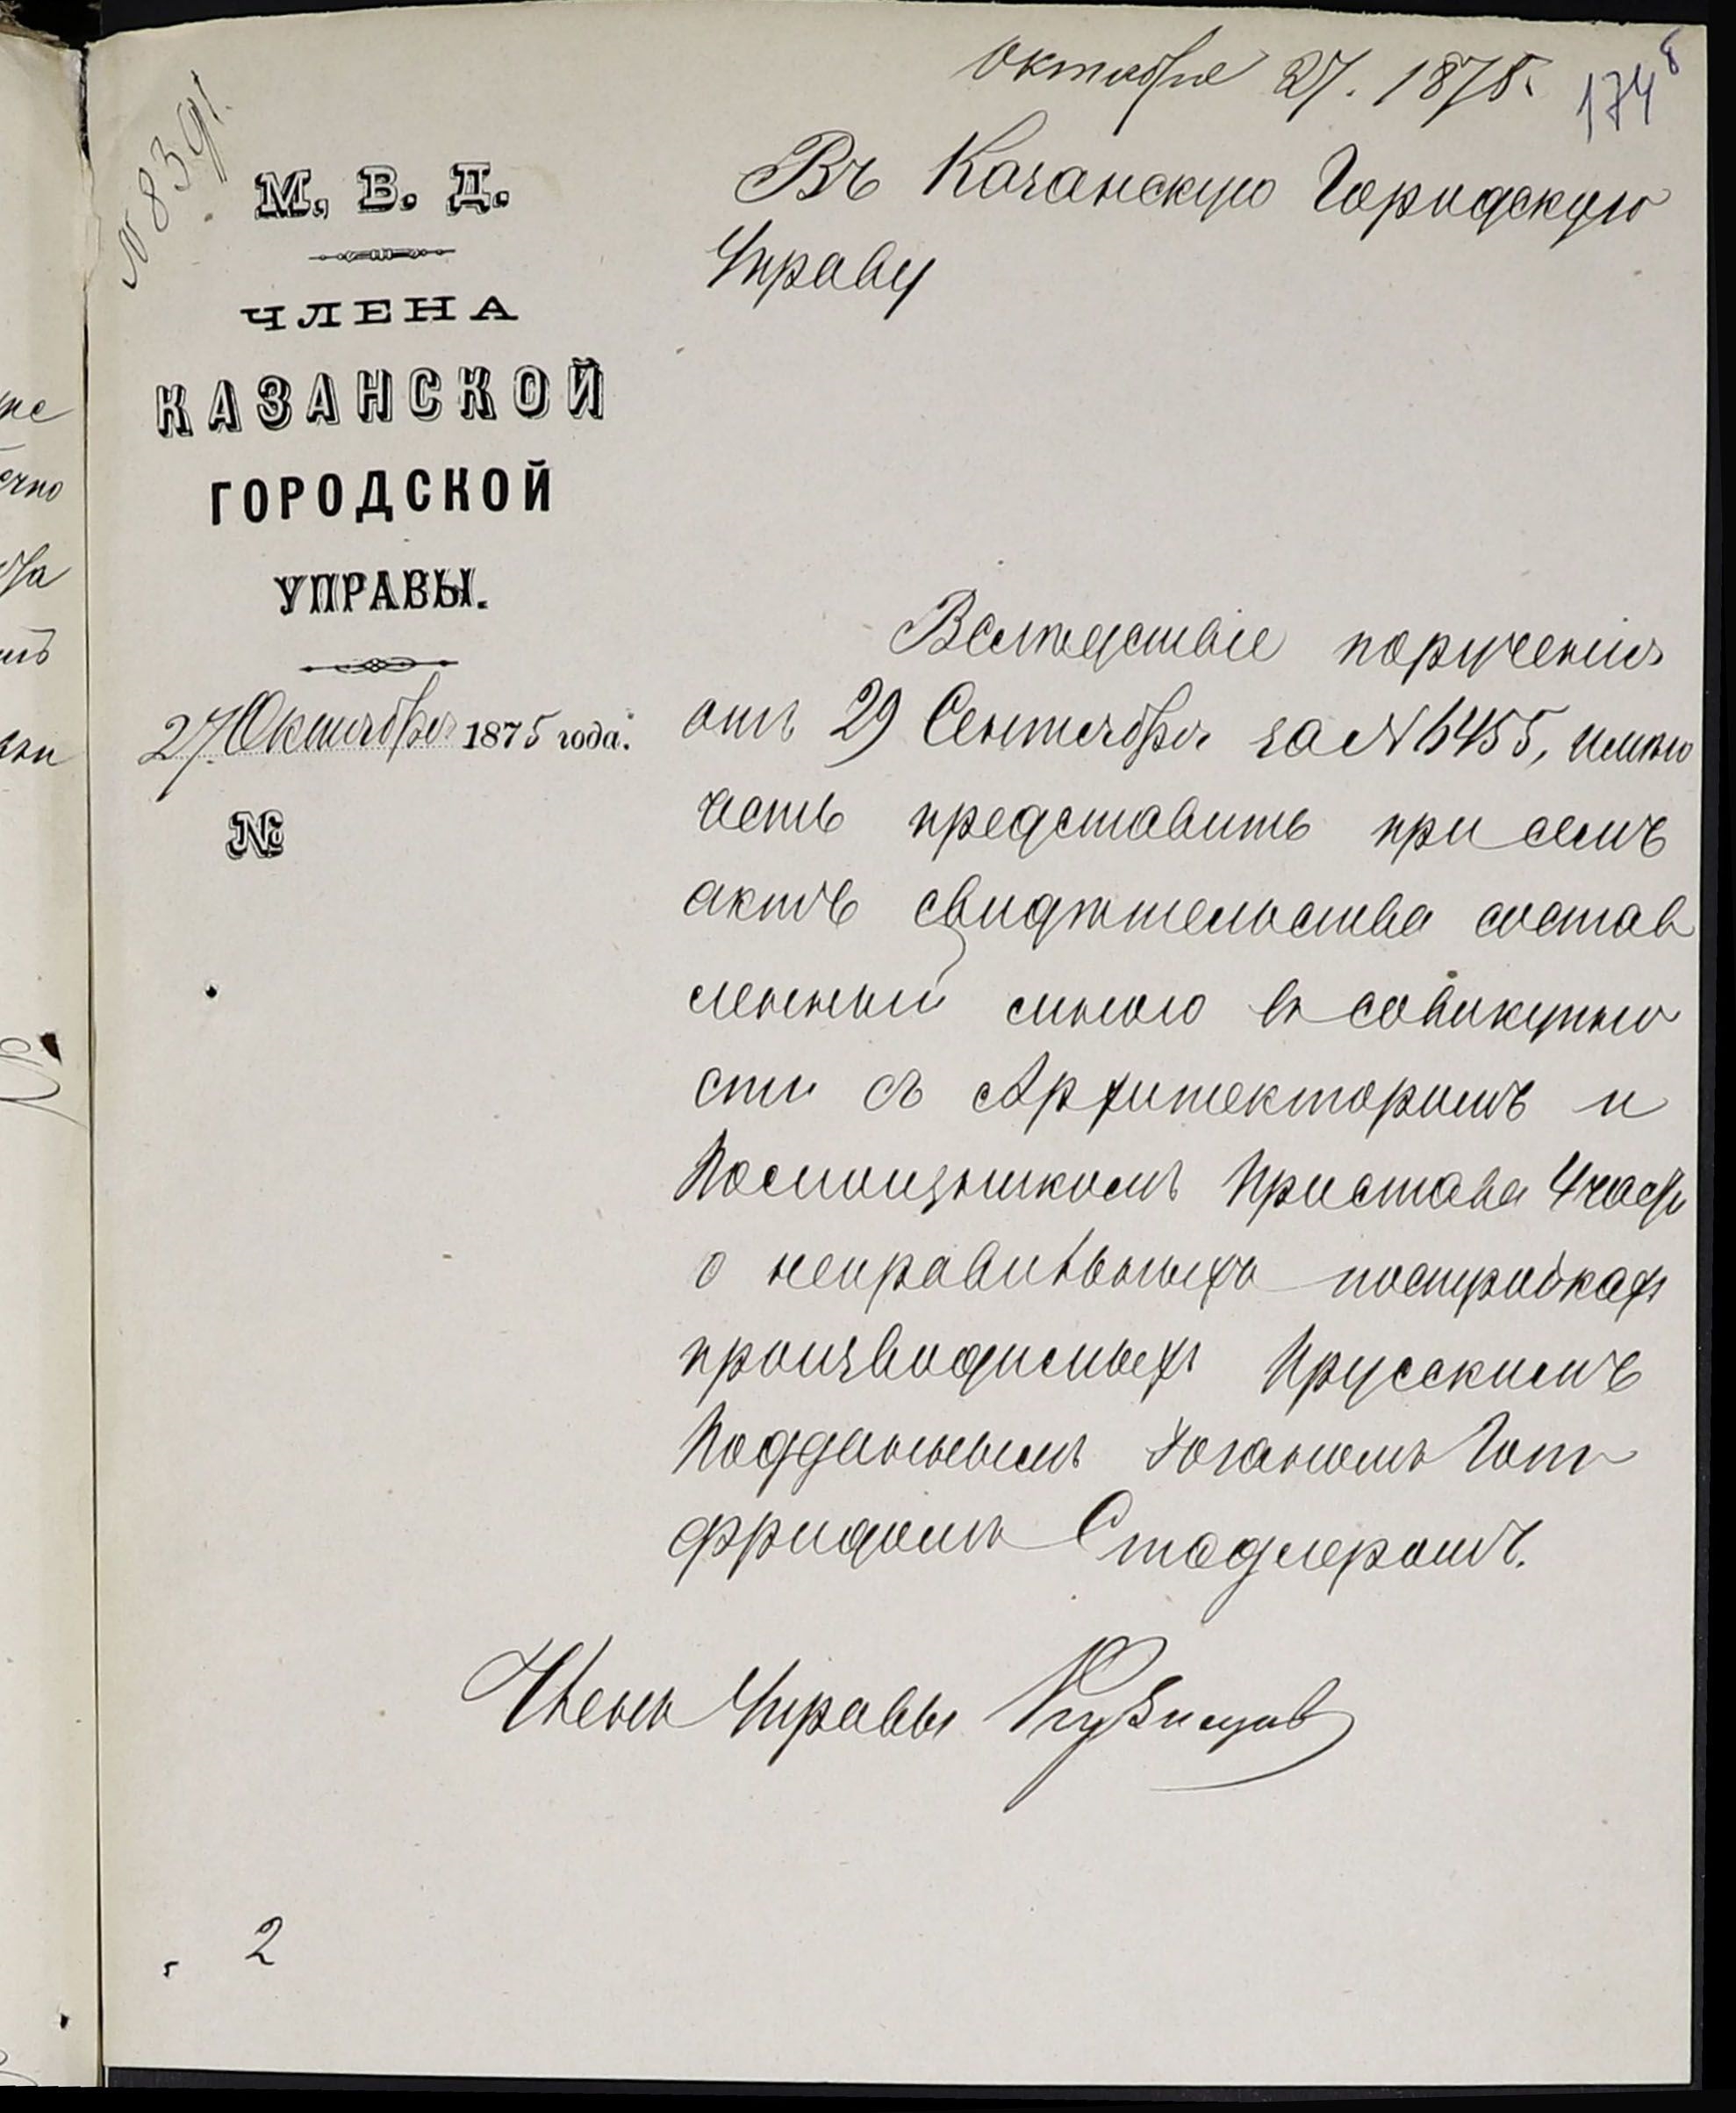 октября 27. 1875.
174
8
№ 8391.
М. В. Д.
ЧЛЕНА
КАЗАНСКОЙ
ГОРОДСКОЙ
УПРАВЫ.
27 Октября 1875 года.
№
Въ Казанскую Городскую
Управу
Вслѣдствіе порученія
отъ 29 Сентября за № 6455, имѣю
честь представить при семъ
актъ свидѣтельства состав
ленный мною въ совокупно
сти съ Архитекторомъ и
Помощникомъ Пристава 4 части
о неправильныхъ постройкахъ
производимыхъ Прусскимъ
Подданнымъ Іоганомъ Гот
фридомъ Стадлеромъ.
Членъ Управы Кузнецов
2